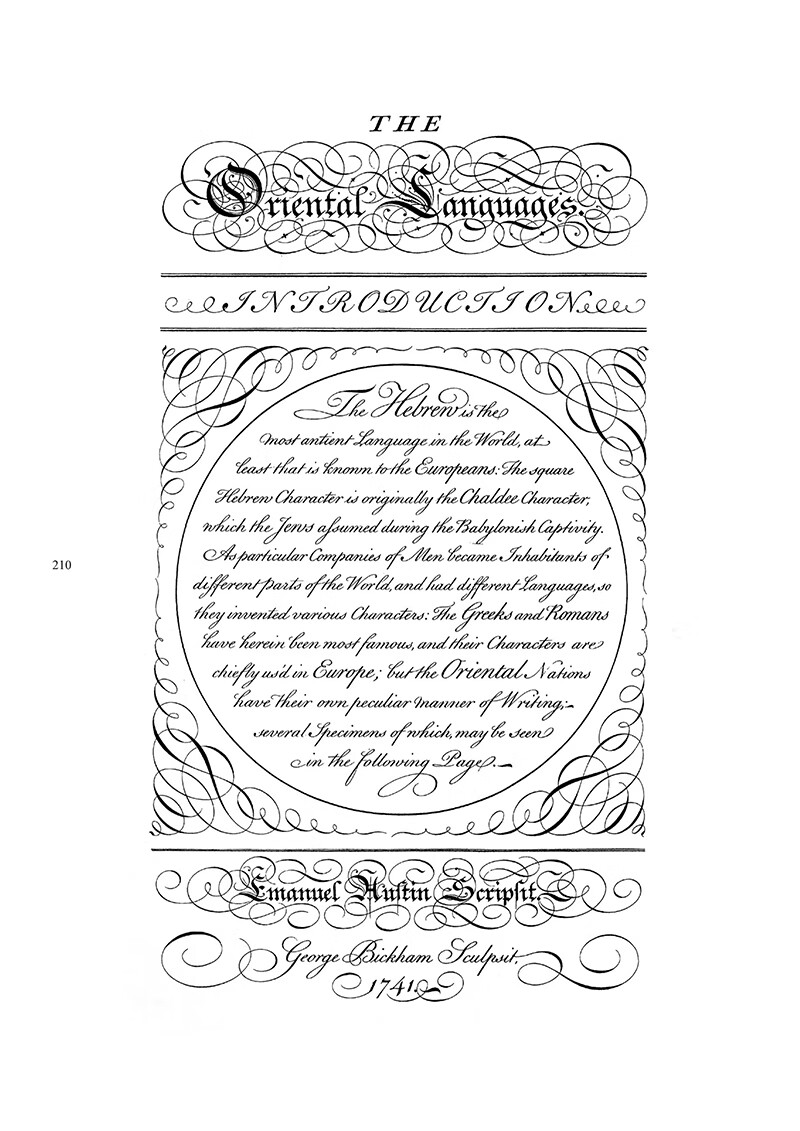 THE
Oriental Languages.
INTRODUCTION
The Hebrew is the
most antient Language in the World, at
least that is known to the Europeans: The square
Hebrew Character is originally the Chaldee Character,
which the Jews aſsumed during the Babylonish Captivity.
As particular Companies of Men became Inhabitants of
different parts of the World, and had different Languages, so
they invented various Characters: The Greeks and Romans
have herein been most famous, and their Characters are
chiefly us'd in Europe; but the Oriental Nations
have their own peculiar manner of Writing;
several Specimens of which, may be seen
in the following Page.
210
Emanuel Austin Scripſit.
George Bickham Sculpsit.
1741.